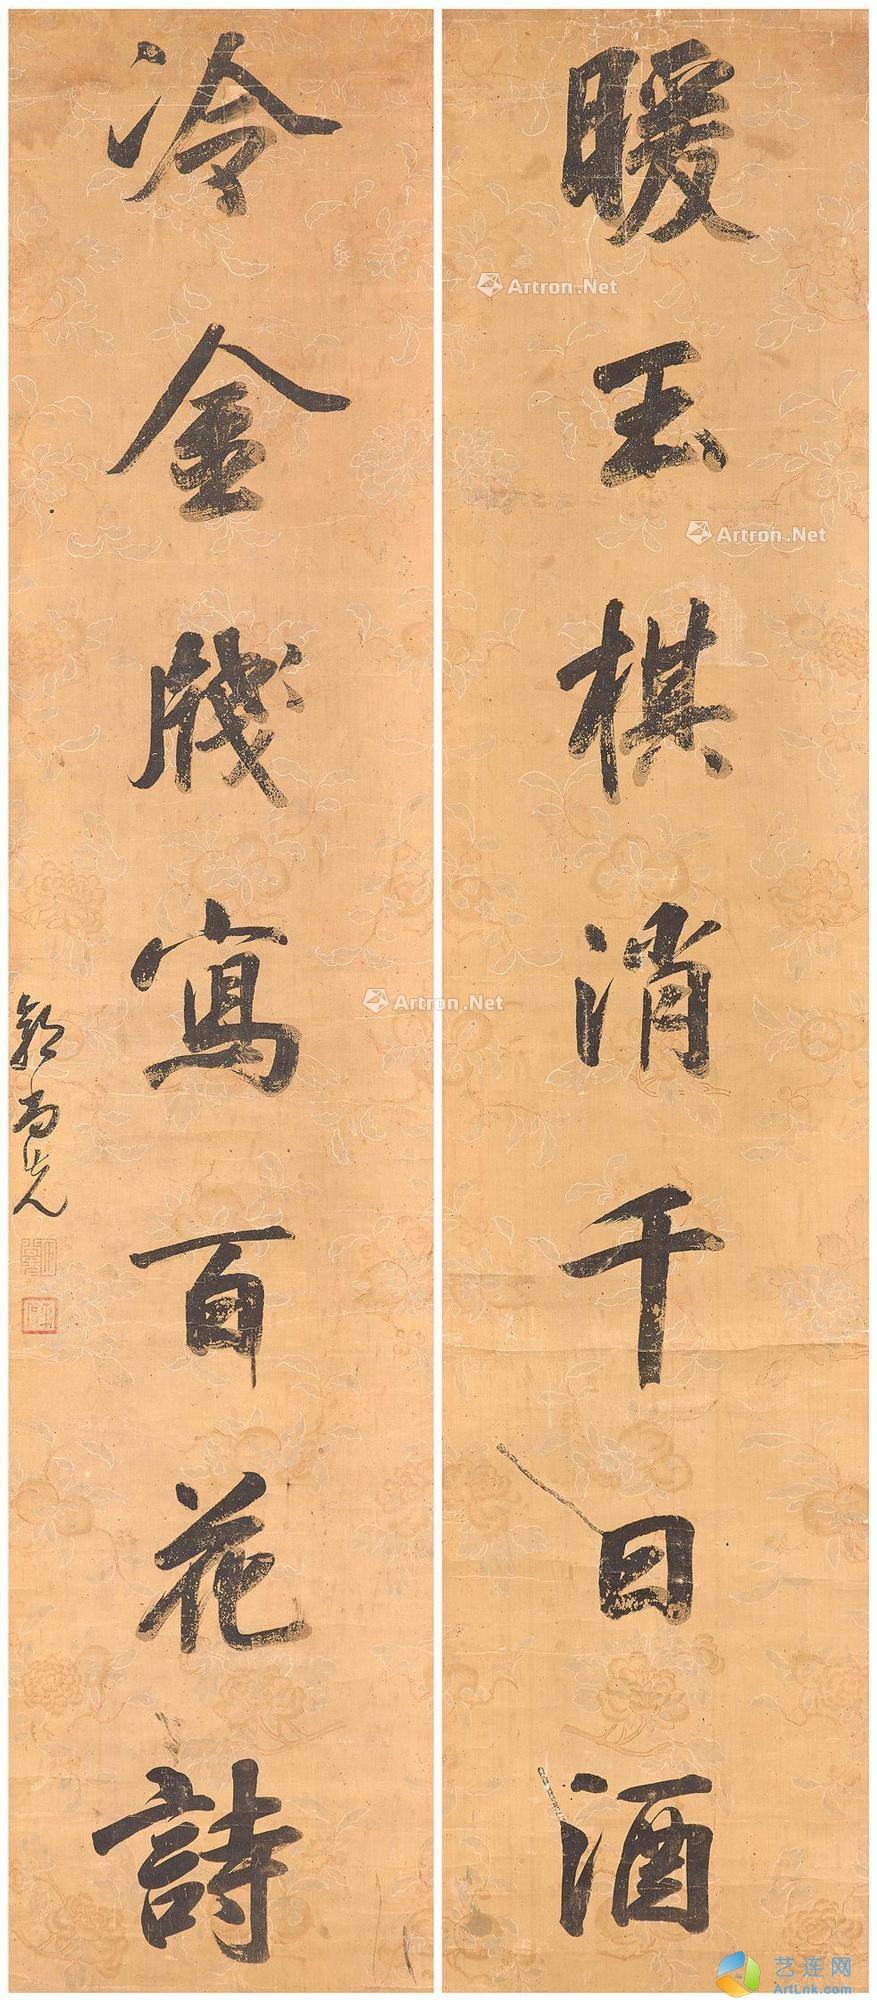 暖玉棋消千日酒
冷金牋寫百花詩
郭尚先
Artron.Net
Artron.Net
Artron.Net
艺连网
ArtLnk.com